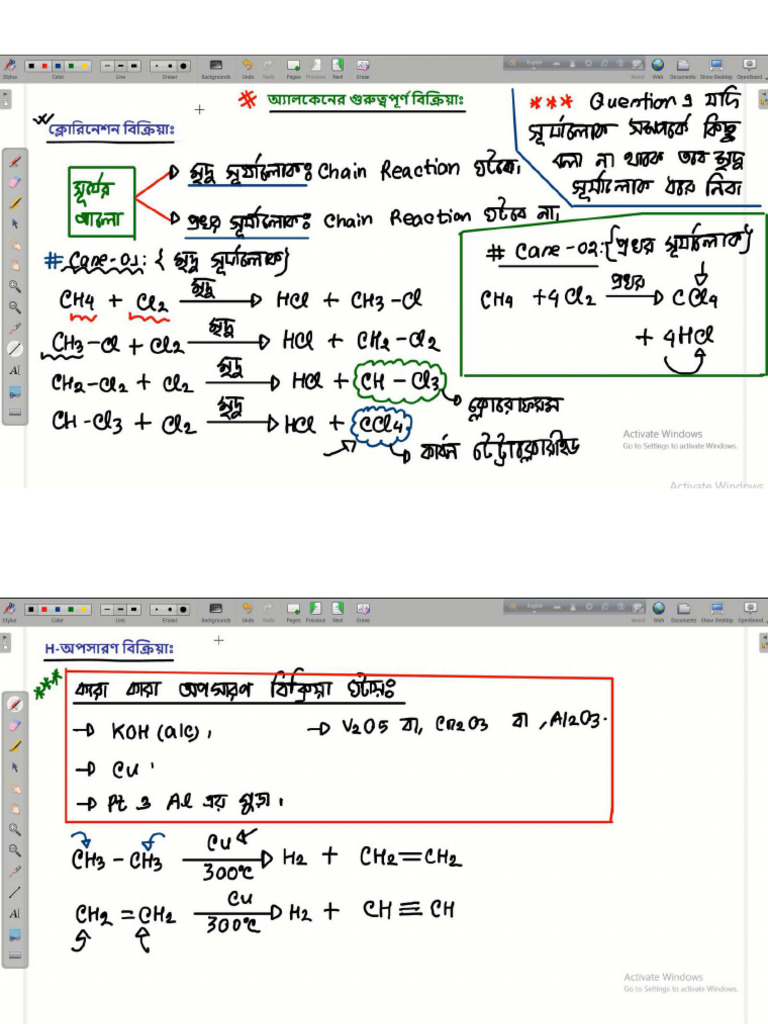 Stylus Color Line Eraser Backgrounds Undo Redo Pages Previous Next Erase Board Web Documents Show Desktop OpenBoard
# অ্যালকেনের গুরুত্বপূর্ণ বিক্রিয়াঃ
*** Question এ যদি
সূর্যালোক সম্পর্কে কিছু
বলা না থাকে তবে মৃদু
সূর্যালোক ধরে নিব।
ক্লোরিনেশন বিক্রিয়াঃ
সূর্যের
আলো
মৃদু সূর্যালোকঃ Chain Reaction ঘটবে।
প্রখর সূর্যালোকঃ Chain Reaction ঘটবে না।
# Case-01: { মৃদু সূর্যালোক}
CH4 + Cl2 —মৃদু→ HCl + CH3-Cl
CH3-Cl + Cl2 —মৃদু→ HCl + CH2-Cl2
CH2-Cl2 + Cl2 —মৃদু→ HCl + CH-Cl3
ক্লোরোফরম
CH-Cl3 + Cl2 —মৃদু→ HCl + CCl4
কার্বন টেট্রাক্লোরাইড
# Case-02:{প্রখর সূর্যালোক}
CH4 +4Cl2 —প্রখর→ CCl4
+ 4HCl
Activate Windows
Go to Settings to activate Windows.
Activate Windows
Stylus Color Line Eraser Backgrounds Undo Redo Pages Previous Next Erase Board Web Documents Show Desktop OpenBoard
H-অপসারণ বিক্রিয়াঃ
*** কারা কারা অপসারণ বিক্রিয়া ঘটায়ঃ
→ KOH (alc)। → V2O5 বা, Cr2O3 বা, Al2O3.
→ Cu।
→ Pt ও Al এর গুড়া।
CH3-CH3 —Cu 300°C→ H2 + CH2=CH2
CH2=CH2 —Cu 300°C→ H2 + CH≡CH
Activate Windows
Go to Settings to activate Windows.